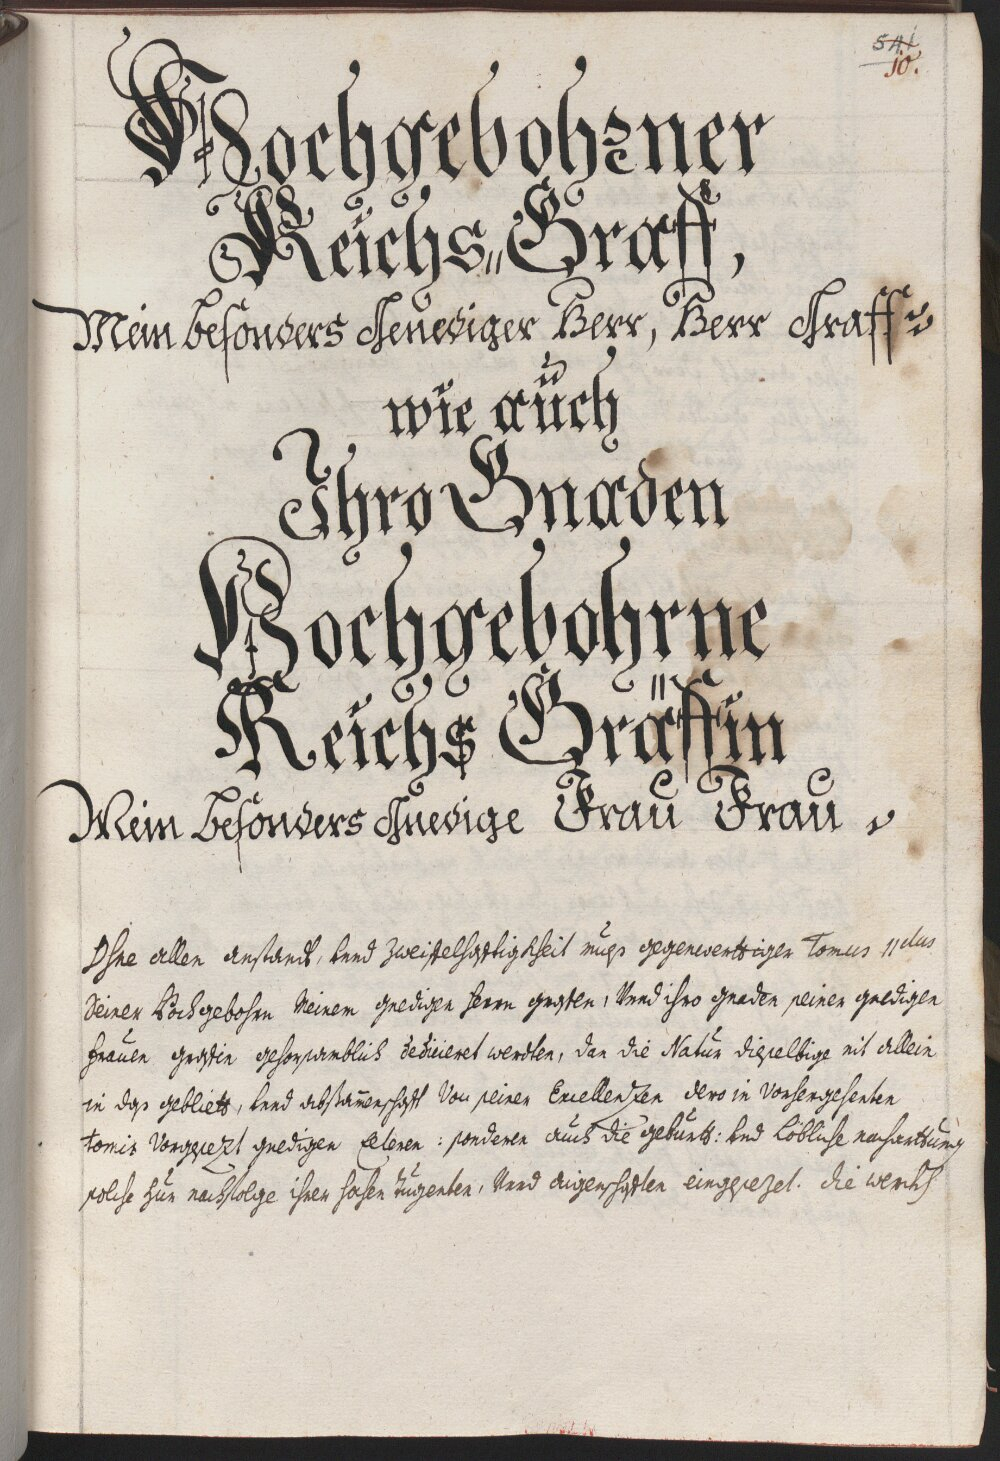 541
10.
Hochgebohrner
Reichs„Graff,
Mein besonders Genediger Herr, Herr Graff
wie auch
Ihro Gnaden
Hochgebohrne
Reichs Gräffin
Mein besonders Gnedige Frau Frau
Ohne allen anstandt, vnnd Zweiffelhafftigkheit mues gegenwerttiger Tomus 11dus
Seiner Hochgebohrn Meinem gnedigen Herrn graffen, Vnnd ihro gnaden seiner gnedigen
Frauen graffin gehorsamblich dediciert werdten, dan die Natur dieselbige nit allein
in das gebliett, vnnd abstamenschafft Von seinen Excellenzen dero in Vorhergehenten
Tomis Vorgesezt gnedigen Elteren: sonderen auch die geburtt: vnd Löbliche nacharttung
solche Zur nachfolge ihrer hohen tugenten, Vnnd aigenschafften eingesezet. die werckh